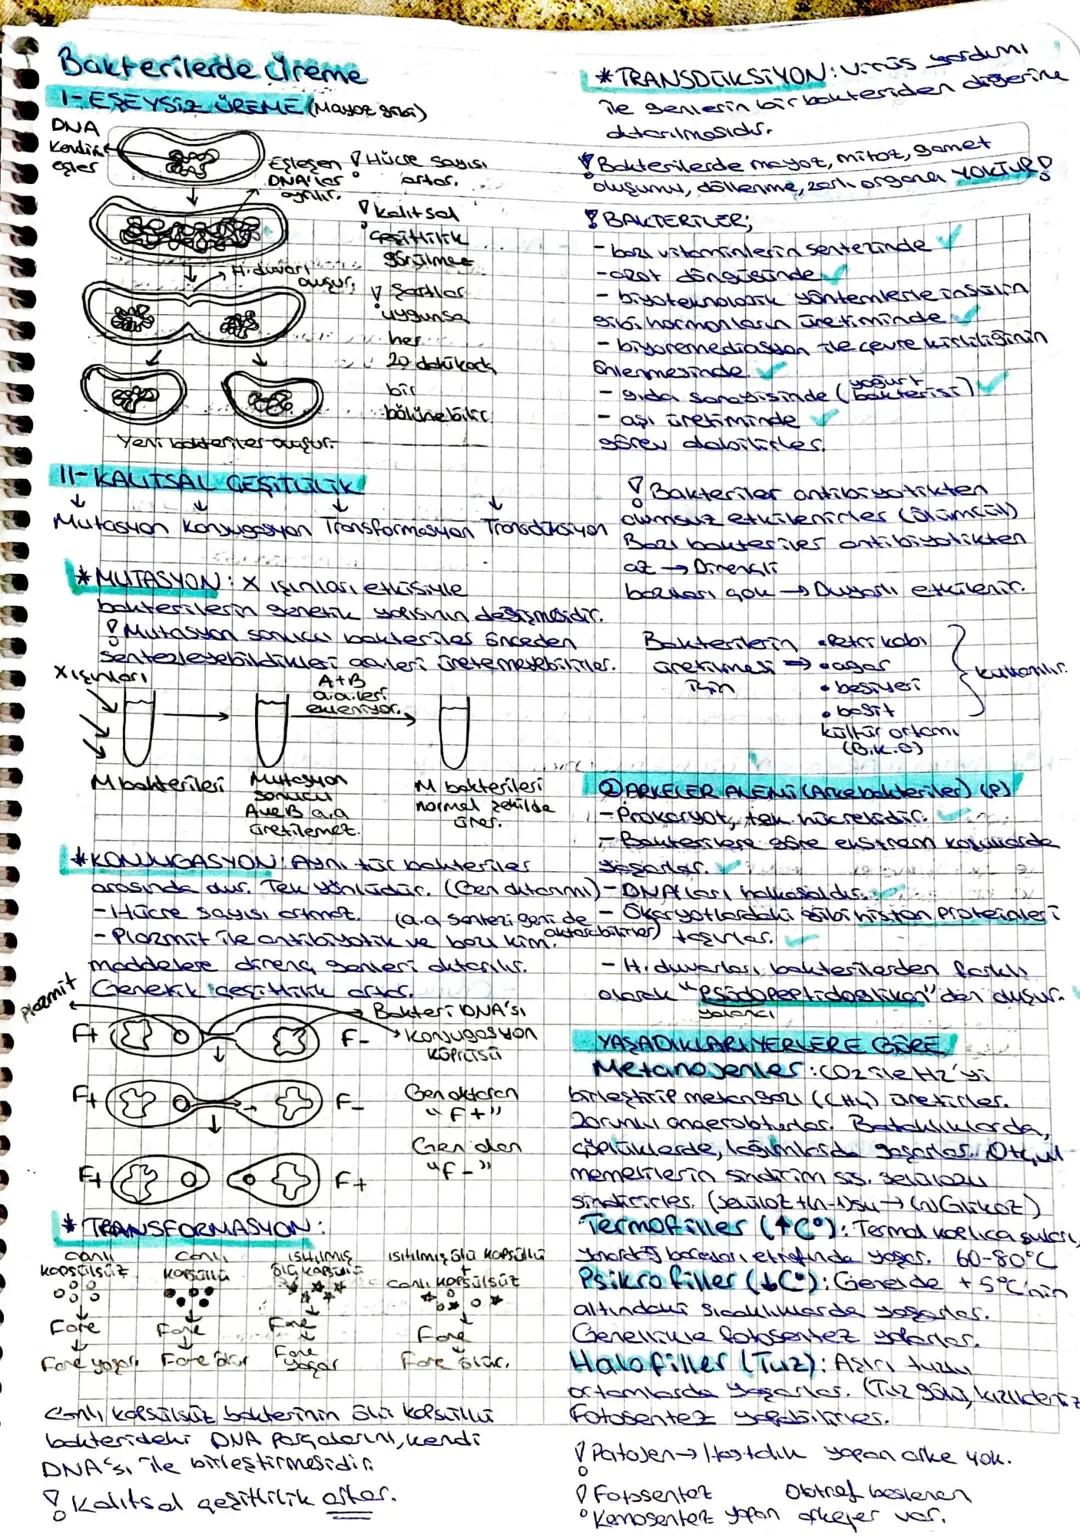 Bakterilerde Üreme
I- EŞEYSİZ ÜREME (Mayoz gibi)
DNA
Kendini
eşler
Eşleşen
DNA'lar
ayrılır.
H. duvarı
oluşur.
Yeni bakteriler oluşur.
! Hücre sayısı
artar.
! Kalıtsal
çeşitlilik
görülmez
! Şartlar
uygunsa
her
20 dakikada
bir
bölünebilir.
II- KALITSAL ÇEŞİTLİLİK
Mutasyon Konjugasyon Transformasyon Transdüksiyon
* MUTASYON: X ışınları etkisiyle
bakterilerin genetik yapısının değişmesidir.
! Mutasyon sonucu bakteriler önceden
sentezleyebildikleri a.a.leri üretemeyebilirler.
X ışınları
A+B
a.a.leri
ekleniyor.
M bakterileri
Mutasyon
sonucu
A ve B a.a
üretilemez.
M bakterileri
normal şekilde
ürer.
* KONJUGASYON: Aynı tür bakteriler
arasında olur. Tek yönlüdür. (Gen aktarımı)
- Hücre sayısı artmaz. (a.a sentezi geni de
aktarabilirler)
- Plazmit ile antibiyotik ve bazı kim.
maddelere direnç genleri aktarılır.
Genetik çeşitlilik artar.
Plazmit
Bakteri DNA'sı
F+ F- Konjugasyon
köprüsü
F+ F- Gen aktaran
"F+"
Gen alan
"F-"
F+ F+
* TRANSFORMASYON:
canlı
kapsülsüz
Fare
Fare yaşar.
canlı
kapsüllü
Fare
Fare ölür
ısıtılmış
ölü kapsüllü
Fare
Fare
yaşar
ısıtılmış ölü kapsüllü
+
canlı kapsülsüz
Fare
Fare ölür.
Canlı kapsülsüz bakterinin ölü kapsüllü
bakterideki DNA parçalarını, kendi
DNA'sı ile birleştirmesidir.
! Kalıtsal çeşitlilik artar.
* TRANSDÜKSİYON: Virüs yardımı
ile genlerin bir bakteriden diğerine
aktarılmasıdır.
! Bakterilerde mayoz, mitoz, gamet
oluşumu, döllenme, zarlı organel YOKTUR!
! BAKTERİLER;
- bazı vitaminlerin sentezinde ✓
- azot döngüsünde ✓
- biyoteknolojik yöntemlerle insülin
gibi hormonların üretiminde ✓
- biyoremediasyon ile çevre kirliliğinin
önlenmesinde. ✓
- gıda sanayisinde (yoğurt bakterisi) ✓
- aşı üretiminde ✓
görev alabilirler.
! Bakteriler antibiyotikten
olumsuz etkilenirler (ölümcül)
Bazı bakteriler antibiyotikten
az → Dirençli
bazıları çok → Duyarlı etkilenir.
Bakterilerin
üretilmesi →
için
• Petri kabı
• agar
• besiyeri
• basit
kültür ortamı
(B.K.O)
kullanılır.
② ARKELER ALEMİ (Arkebakteriler) (P)
- Prokaryot, tek hücrelidir. ✓
- Bakterilere göre ekstrem koşullarda
yaşarlar. ✓
- DNA'ları halkasaldır. ✓
- Ökaryotlardaki gibi histon proteinleri
taşırlar. ✓
- H. duvarları bakterilerden farklı
olarak "Psödopeptidoglikan"dan oluşur.
yalancı
YAŞADIKLARI YERLERE GÖRE
Metanojenler: CO2 ile H2'yi
birleştirip metan gazı (CH4) üretirler.
Zorunlu anaerobturlar. Bataklıklarda,
çöplüklerde, lağımlarda yaşarlar. Otçul
memelilerin sindirim sis. selülozu
sindirirler. (selüloz + (n-1)su → (n)Glikoz)
Termofiller (↑C°): Termal kaplıca suları,
yanardağ bacaları etrafında yaşar. 60-80°C
Psikrofiller (↓C°): Genelde +5°C'nin
altındaki sıcaklıklarda yaşarlar.
Genellikle fotosentez yaparlar.
Halofiller (Tuz): Aşırı tuzlu
ortamlarda yaşarlar. (Tuz gölü, kızıldeniz
Fotosentez yapabilirler.
! Patojen → Hastalık yapan arke yok.
! Fotosentez Ototrof beslenen
Kemosentez yapan arkeler var.